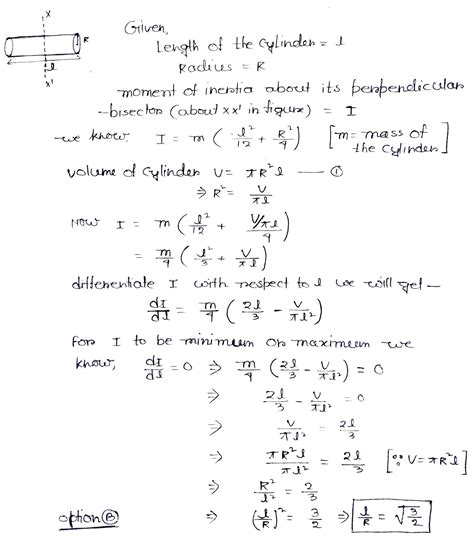 x
R
l
x'
Given,
Length of the cylinder = l
Radius = R
moment of inertia about its perpendicular
-bisector (about xx' in figure) = I
we know. I = m ( l²/12 + R²/4 ) [m = mass of the cylinder]
volume of cylinder V = πR²l — ①
⇒ R² = V/πl
Now I = m ( l²/12 + V/πl/4 )
= m/4 ( l²/3 + V/πl )
differentiate I with respect to l we will get —
dI/dl = m/4 ( 2l/3 - V/πl² )
For I to be minimum or maximum we
know, dI/dl = 0 ⇒ m/4 ( 2l/3 - V/πl² ) = 0
⇒ 2l/3 - V/πl² = 0
⇒ V/πl² = 2l/3
⇒ πR²l/πl² = 2l/3 [∵ V = πR²l]
⇒ R²/l² = 2/3
option Ⓑ ⇒ (l/R)² = 3/2 ⇒ l/R = √3/2